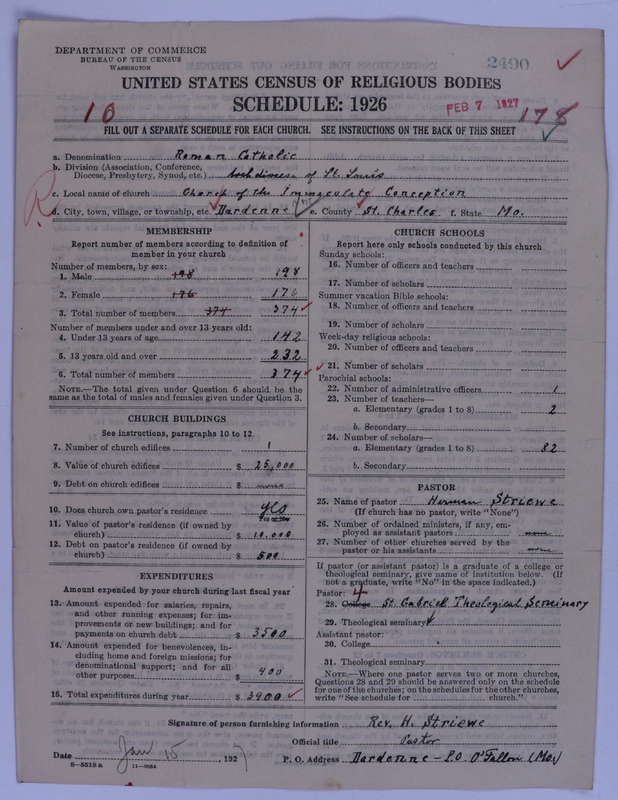 DEPARTMENT OF COMMERCE
BUREAU OF THE CENSUS
WASHINGTON
2490
UNITED STATES CENSUS OF RELIGIOUS BODIES
SCHEDULE: 1926
10
FEB 7 1927
178
FILL OUT A SEPARATE SCHEDULE FOR EACH CHURCH. SEE INSTRUCTIONS ON THE BACK OF THIS SHEET
a. Denomination Roman Catholic
b. Division (Association, Conference,
Diocese, Presbytery, Synod, etc.) Archdiocese of St. Louis
c. Local name of church Church of the Immaculate Conception
d. City, town, village, or township, etc. Dardenne e. County St. Charles f. State Mo.
MEMBERSHIP
Report number of members according to definition of
member in your church
Number of members, by sex:
1. Male 198 198
2. Female 176 176
3. Total number of members 374 374
Number of members under and over 13 years old:
4. Under 13 years of age 142
5. 13 years old and over 232
6. Total number of members 374
NOTE.—The total given under Question 6 should be the
same as the total of males and females given under Question 3.
CHURCH BUILDINGS
See instructions, paragraphs 10 to 12
7. Number of church edifices 1
8. Value of church edifices $ 25,000
9. Debt on church edifices $ none
10. Does church own pastor's residence yes
Yes or No
11. Value of pastor's residence (if owned by
church) $ 10.000
12. Debt on pastor's residence (if owned by
church) $ 500
EXPENDITURES
Amount expended by your church during last fiscal year
13. Amount expended for salaries, repairs,
and other running expenses; for im-
provements or new buildings; and for
payments on church debt $ 3500
14. Amount expended for benevolences, in-
cluding home and foreign missions; for
denominational support; and for all
other purposes $ 400
15. Total expenditures during year $ 3900
CHURCH SCHOOLS
Report here only schools conducted by this church
Sunday schools:
16. Number of officers and teachers
17. Number of scholars
Summer vacation Bible schools:
18. Number of officers and teachers
19. Number of scholars
Week-day religious schools:
20. Number of officers and teachers
21. Number of scholars
Parochial schools:
22. Number of administrative officers 1
23. Number of teachers—
a. Elementary (grades 1 to 8) 2
b. Secondary
24. Number of scholars—
a. Elementary (grades 1 to 8) 82
b. Secondary
PASTOR
25. Name of pastor Herman Striewe
(If church has no pastor, write "None")
26. Number of ordained ministers, if any, em-
ployed as assistant pastors none
27. Number of other churches served by the
pastor or his assistants none
If pastor (or assistant pastor) is a graduate of a college or
theological seminary, give name of institution below. (If
not a graduate, write "No" in the space indicated.)
Pastor: 4
28. College St. Gabriel Theological Seminary
29. Theological seminary
Assistant pastor:
30. College
31. Theological seminary
NOTE.—Where one pastor serves two or more churches,
Questions 28 and 29 should be answered only on the schedule
for one of the churches; on the schedules for the other churches,
write "See schedule for church."
Signature of person furnishing information Rev. H. Striewe
Official title Pastor
Date Jan 15, 1927
P. O. Address Dardenne - P.O. O'Fallon (Mo.)
8—5518 a 11—9054